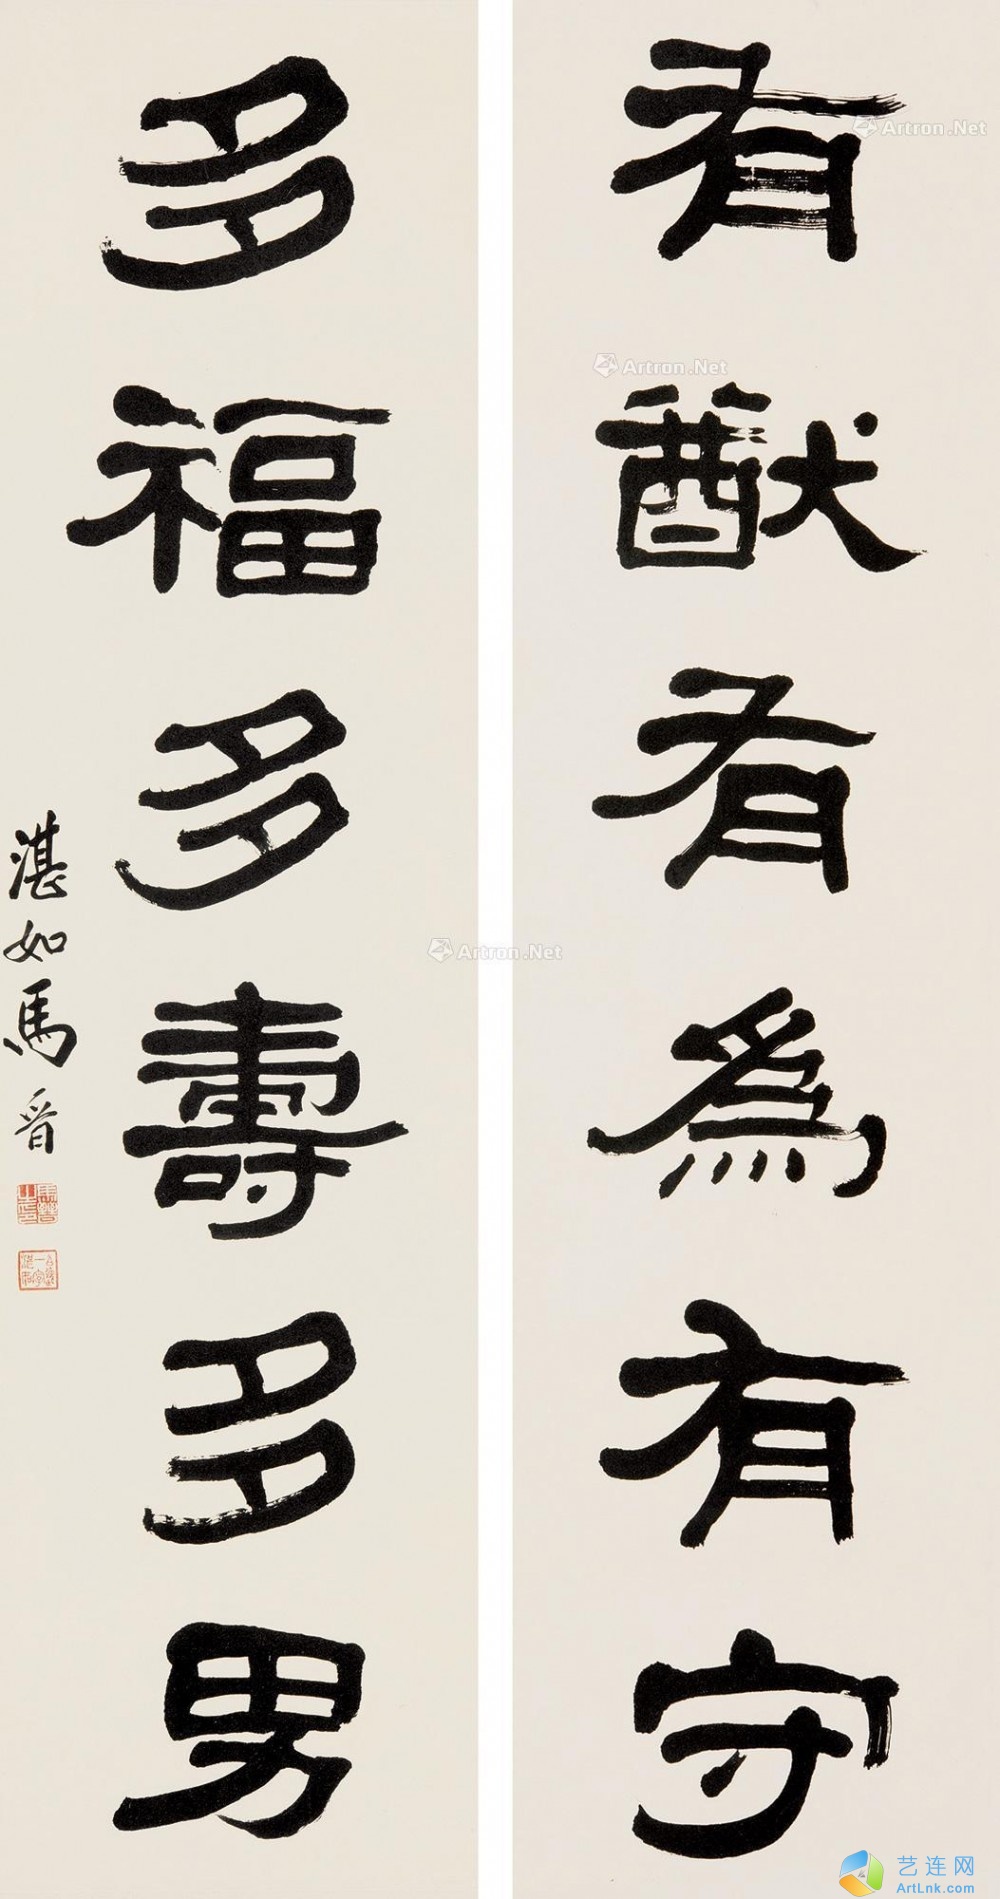 有猷有為有守
多福多壽多男
湛如馬晉
Artron.Net
Artron.Net
Artron.Net
艺连网
ArtLnk.com